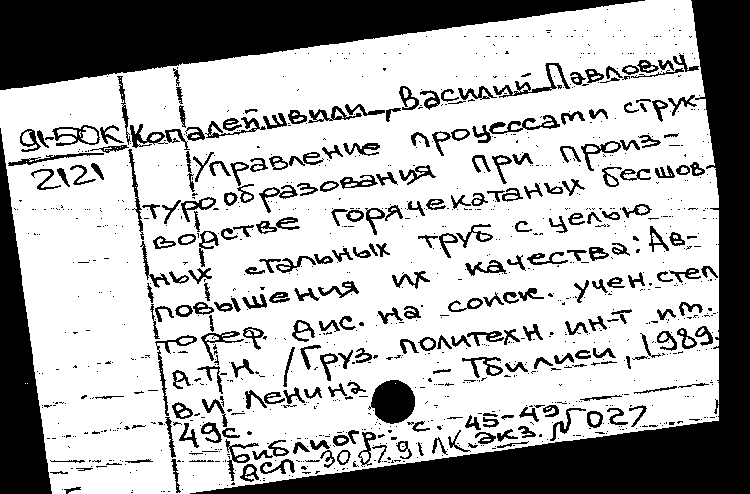 91-50К Копалейшвили, Василий Павлович
2121 Управление процессами струк-
турообразования при произ-
водстве горячекатаных бесшов-
ных стальных труб с целью
повышения их качества: Ав-
тореф. дис. на соиск. учен. степ
д.т.н. /Груз. политехн. ин-т им.
В.И Ленина .- Тбилиси, 1989.
49с.
Библиогр.: с. 45-49
дсп. 30.07.91 ЛК. экз. № 027